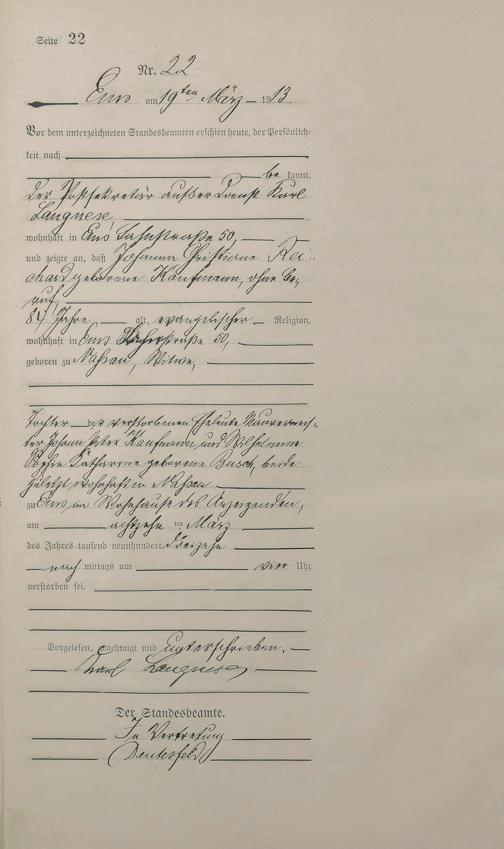 Seite 22
Nr. 22
Ems am 19ten März 1913
Vor dem unterzeichneten Standesbeamten erschien heute, der Persönlich-
keit nach
be kannt,
der Postsekretär außer Dienst Karl
Langnese,
wohnhaft in Ems Lahnstraße 50,
und zeigte an, daß Johanna Christiane Rei-
chard geborene Kaufmann, ohne Be-
ruf,
84 Jahre, alt, evangelischer Religion,
wohnhaft in Ems Lahnstraße 50,
geboren zu Nassau, Witwe,
Tochter der verstorbenen Eheleute Maurermeis-
ter Johann Peter Kaufmann und Wilhelmine
Sophie Katharine geborene Busch, beide
zuletzt wohnhaft in Nassau
zu Ems im Wohnhause des Anzeigenden,
am achtzehn ten März
des Jahres tausend neunhundert dreizehn
nach mittags um vier Uhr
verstorben sei.
Vorgelesen, genehmigt und unterschrieben.
Karl Langnese
Der Standesbeamte.
In Vertretung